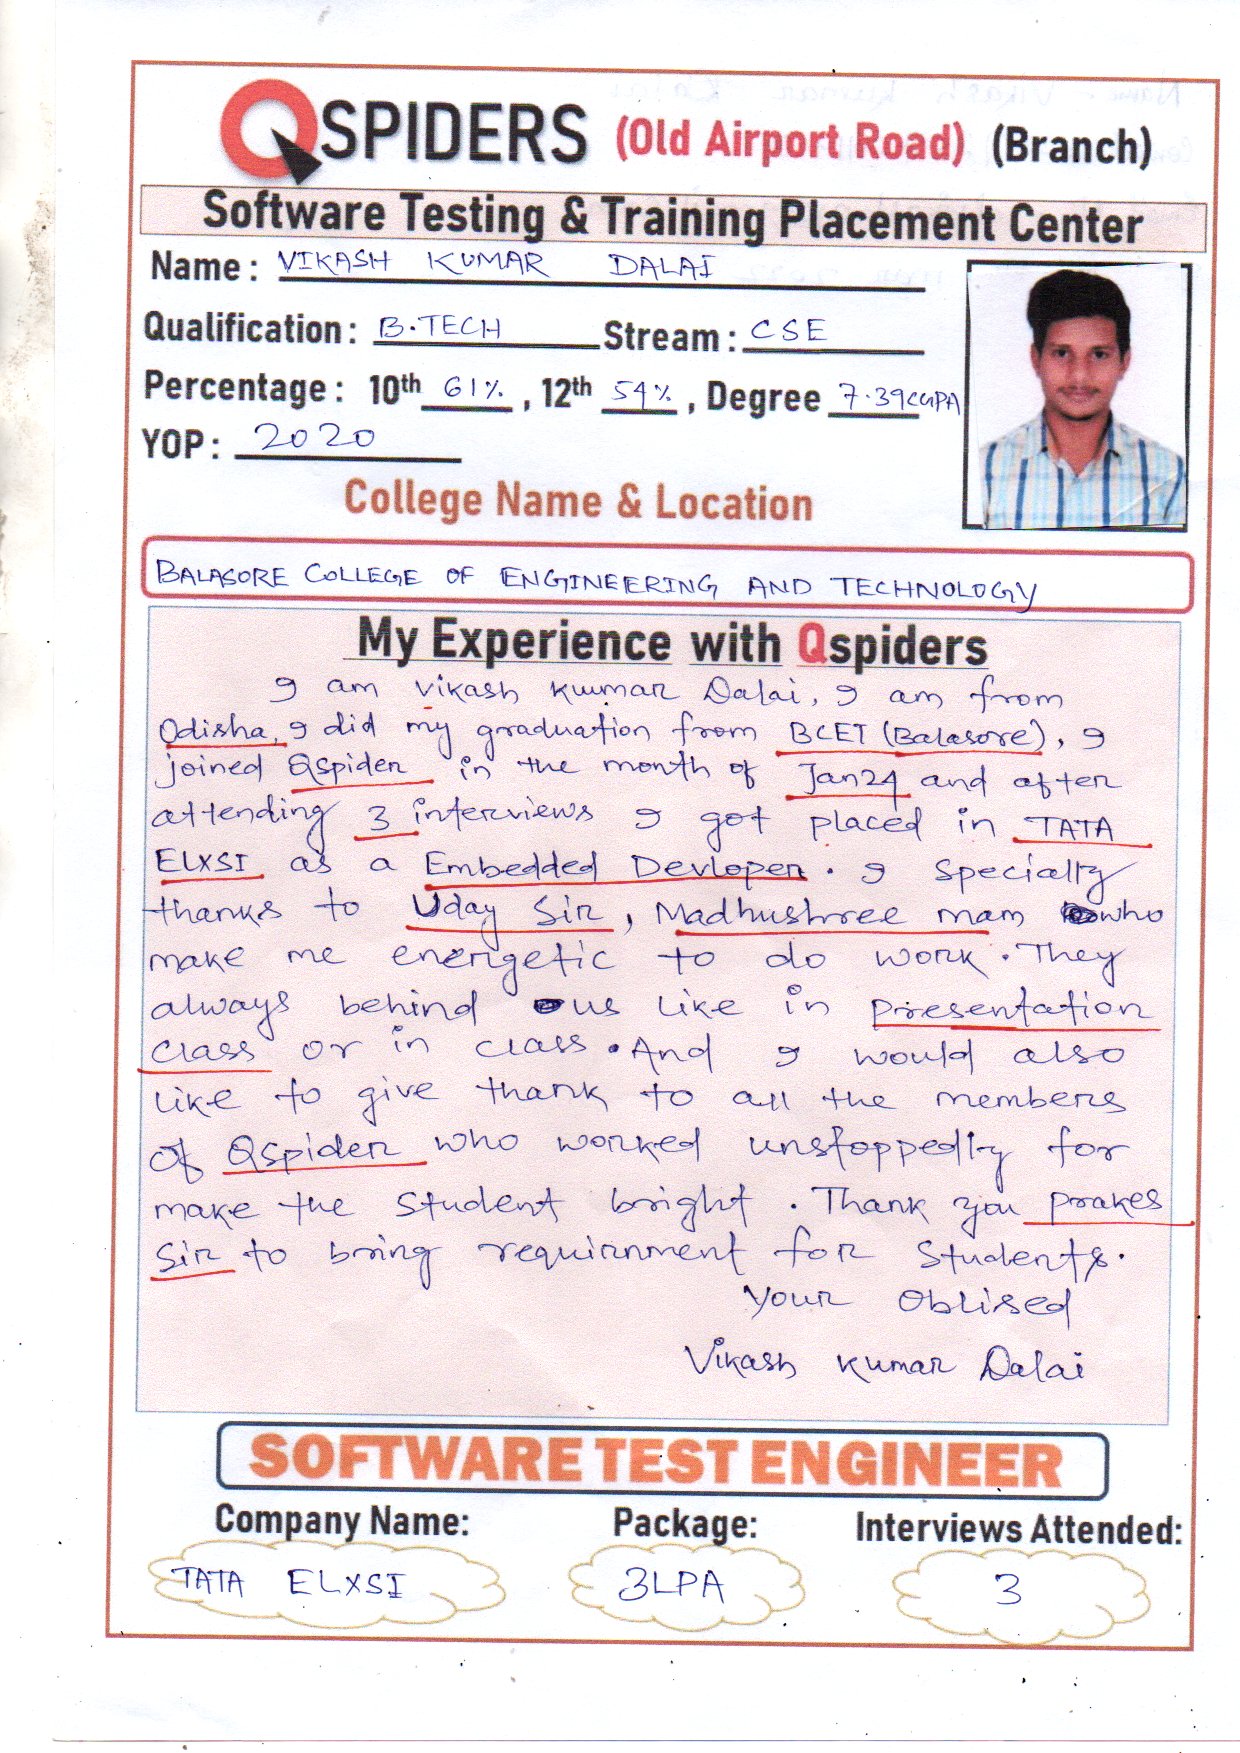 QSPIDERS (Old Airport Road) (Branch)
Software Testing & Training Placement Center
Name : VIKASH KUMAR DALAI
Qualification : B.TECH Stream : CSE
Percentage : 10th 61% , 12th 54% , Degree 7.39CGPA
YOP : 2020
College Name & Location
BALASORE COLLEGE OF ENGINEERING AND TECHNOLOGY
My Experience with Qspiders
I am Vikash Kuumar Dalai, I am from
Odisha, I did my graduation from BCET (Balasore), I
joined QSpider in the month of Jan24 and after
attending 3 interviews I got placed in TATA
ELXSI as a Embedded Devloper. I Specialty
thanks to Uday Sir, Madhushree mam who
make me energetic to do work. They
always behind us like in Presentation
class or in class. And I would also
like to give thank to all the members
of QSpider who worked unstoppedly for
make the Student bright. Thank you prakes
Sir to bring requirnment for Students.
Your Oblised
Vikash Kumar Dalai
SOFTWARE TEST ENGINEER
Company Name: Package: Interviews Attended:
TATA ELXSI 3LPA 3